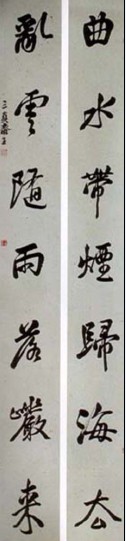 曲水帶煙歸海去
亂雲隨雨落巖來